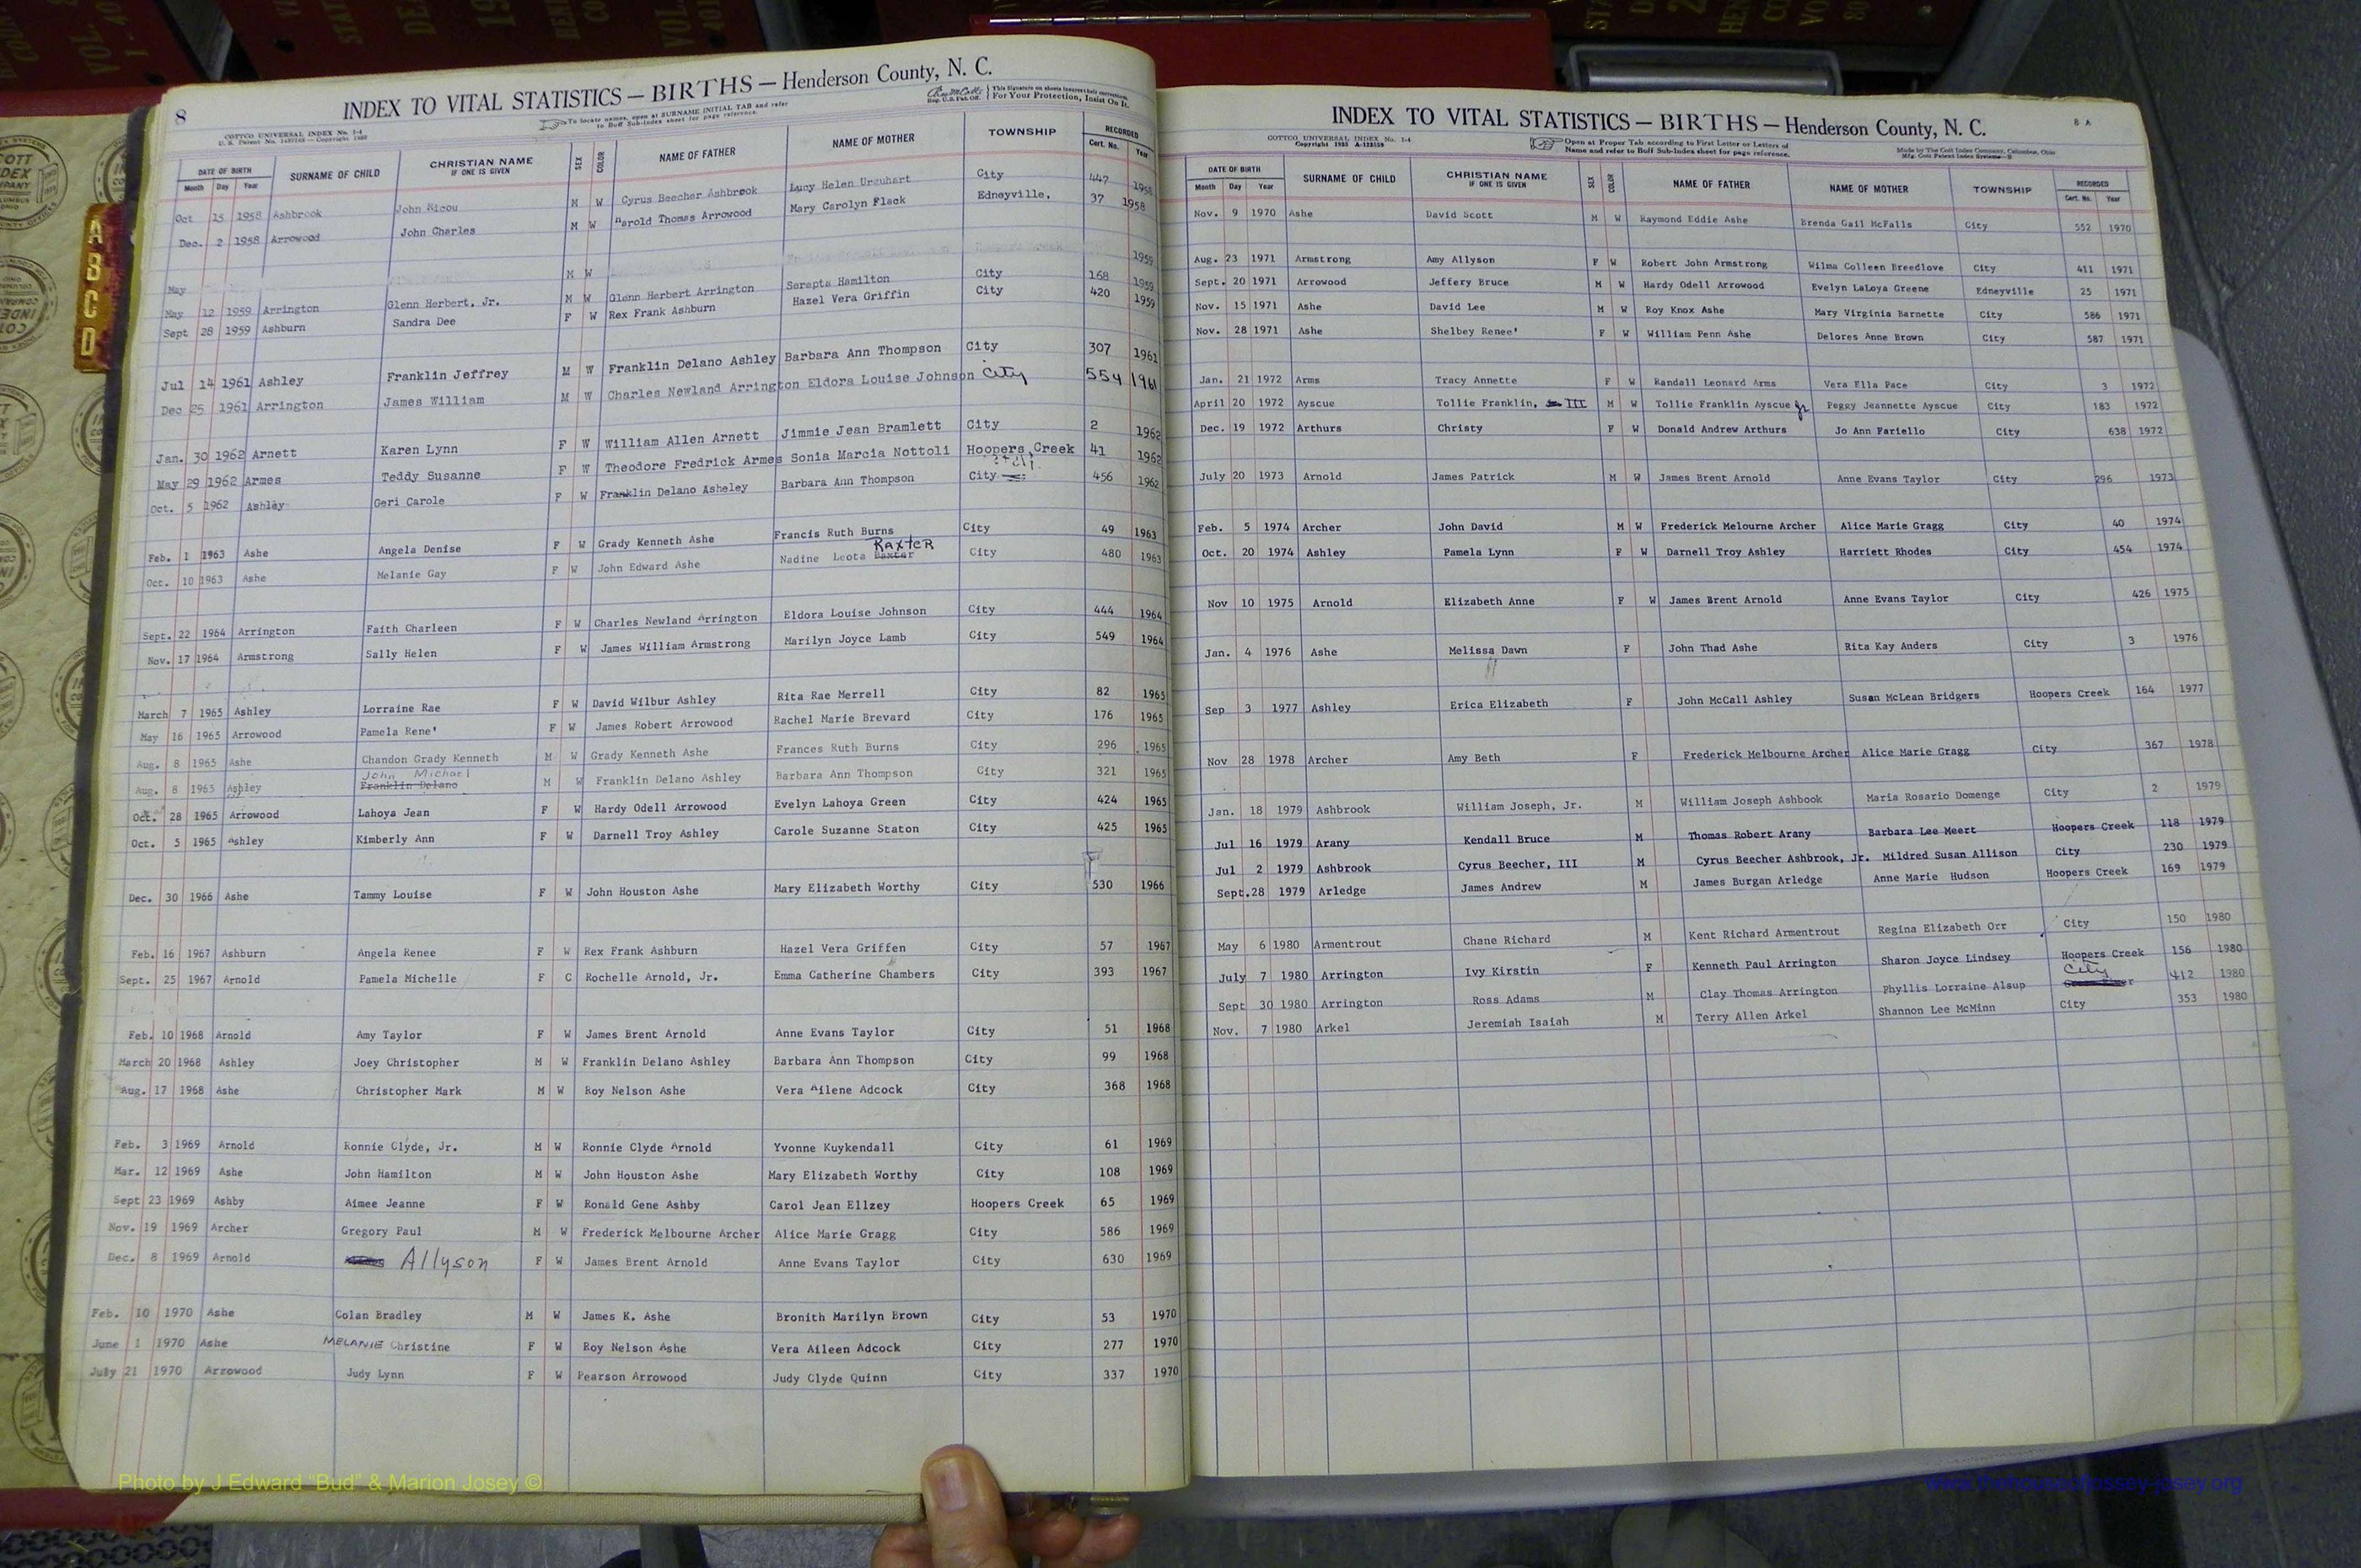 8
INDEX TO VITAL STATISTICS — BIRTHS — Henderson County, N. C.
COTTCO UNIVERSAL INDEX No. 1-4
To locate names, open at SURNAME INITIAL TAB and refer
to Buff Sub-Index sheet for page reference.
Reg. U.S. Pat. Off.
For Your Protection, Insist On It.
DATE OF BIRTH
Month Day Year
SURNAME OF CHILD
CHRISTIAN NAME
IF ONE IS GIVEN
SEX
COLOR
NAME OF FATHER
NAME OF MOTHER
TOWNSHIP
RECORDED
Cert. No. Year
Oct 15 1958 Ashbrook John Ricou M W Cyrus Beecher Ashbrook Lucy Helen Urquhart City 447 1958
Dec. 2 1958 Arrowood John Charles M W Harold Thomas Arrowood Mary Carolyn Flack Edneyville, 37 1958
May M W 1959
May 12 1959 Arrington Glenn Herbert, Jr. M W Glenn Herbert Arrington Serepta Hamilton City 168 1959
Sept 28 1959 Ashburn Sandra Dee F W Rex Frank Ashburn Hazel Vera Griffin City 420 1959
Jul 14 1961 Ashley Franklin Jeffrey M W Franklin Delano Ashley Barbara Ann Thompson City 307 1961
Dec 25 1961 Arrington James William M W Charles Newland Arrington Eldora Louise Johnson City 554 1961
Jan. 30 1962 Arnett Karen Lynn F W William Allen Arnett Jimmie Jean Bramlett City 2 1962
May 29 1962 Armes Teddy Susanne F W Theodore Fredrick Armes Sonia Marcia Nottoli Hoopers Creek 41 1962
Oct. 5 1962 Ashley Geri Carole F W Franklin Delano Asheley Barbara Ann Thompson City 456 1962
Feb. 1 1963 Ashe Angela Denise F W Grady Kenneth Ashe Francis Ruth Burns City 49 1963
Oct. 10 1963 Ashe Melanie Gay F W John Edward Ashe Nadine Leota Baxter RAXTER City 480 1963
Sept. 22 1964 Arrington Faith Charleen F W Charles Newland Arrington Eldora Louise Johnson City 444 1964
Nov. 17 1964 Armstrong Sally Helen F W James William Armstrong Marilyn Joyce Lamb City 549 1964
March 7 1965 Ashley Lorraine Rae F W David Wilbur Ashley Rita Rae Merrell City 82 1965
May 16 1965 Arrowood Pamela Rene' F W James Robert Arrowood Rachel Marie Brevard City 176 1965
Aug. 8 1965 Ashe Chandon Grady Kenneth M W Grady Kenneth Ashe Frances Ruth Burns City 296 1965
Aug. 8 1965 Ashley John Michael Franklin Delano M W Franklin Delano Ashley Barbara Ann Thompson City 321 1965
Oct. 28 1965 Arrowood Lahoya Jean F W Hardy Odell Arrowood Evelyn Lahoya Green City 424 1965
Oct. 5 1965 Ashley Kimberly Ann F W Darnell Troy Ashley Carole Suzanne Staton City 425 1965
Dec. 30 1966 Ashe Tammy Louise F W John Houston Ashe Mary Elizabeth Worthy City 530 1966
Feb. 16 1967 Ashburn Angela Renee F W Rex Frank Ashburn Hazel Vera Griffen City 57 1967
Sept. 25 1967 Arnold Pamela Michelle F C Rochelle Arnold, Jr. Emma Catherine Chambers City 393 1967
Feb. 10 1968 Arnold Amy Taylor F W James Brent Arnold Anne Evans Taylor City 51 1968
March 20 1968 Ashley Joey Christopher M W Franklin Delano Ashley Barbara Ann Thompson City 99 1968
Aug. 17 1968 Ashe Christopher Mark M W Roy Nelson Ashe Vera Ailene Adcock City 368 1968
Feb. 3 1969 Arnold Ronnie Clyde, Jr. M W Ronnie Clyde Arnold Yvonne Kuykendall City 61 1969
Mar. 12 1969 Ashe John Hamilton M W John Houston Ashe Mary Elizabeth Worthy City 108 1969
Sept 23 1969 Ashby Aimee Jeanne F W Ronald Gene Ashby Carol Jean Ellzey Hoopers Creek 65 1969
Nov. 19 1969 Archer Gregory Paul M W Frederick Melbourne Archer Alice Marie Gragg City 586 1969
Dec. 8 1969 Arnold Allyson F W James Brent Arnold Anne Evans Taylor City 630 1969
Feb. 10 1970 Ashe Colan Bradley M W James K. Ashe Bronith Marilyn Brown City 53 1970
June 1 1970 Ashe MELANIE Christine F W Roy Nelson Ashe Vera Aileen Adcock City 277 1970
July 21 1970 Arrowood Judy Lynn F W Pearson Arrowood Judy Clyde Quinn City 337 1970
Photo by J Edward "Bud" & Marion Josey ©
INDEX TO VITAL STATISTICS — BIRTHS — Henderson County, N. C.
8 A
COTTCO UNIVERSAL INDEX No. 1-4
Open at Proper Tab according to First Letter or Letters of
Name and refer to Buff Sub-Index sheet for page reference.
Made by The Cott Index Company, Columbus, Ohio
DATE OF BIRTH
Month Day Year
SURNAME OF CHILD
CHRISTIAN NAME
IF ONE IS GIVEN
SEX
COLOR
NAME OF FATHER
NAME OF MOTHER
TOWNSHIP
RECORDED
Cert. No. Year
Nov. 9 1970 Ashe David Scott M W Raymond Eddie Ashe Brenda Gail McFalls City 552 1970
Aug. 23 1971 Armstrong Amy Allyson F W Robert John Armstrong Wilma Colleen Breedlove City 411 1971
Sept. 20 1971 Arrowood Jeffery Bruce M W Hardy Odell Arrowood Evelyn LaLoya Greene Edneyville 25 1971
Nov. 15 1971 Ashe David Lee M W Roy Knox Ashe Mary Virginia Barnette City 586 1971
Nov. 28 1971 Ashe Shelbey Renee' F W William Penn Ashe Delores Anne Brown City 587 1971
Jan. 21 1972 Arms Tracy Annette F W Randall Leonard Arms Vera Ella Pace City 3 1972
April 20 1972 Ayscue Tollie Franklin, III M W Tollie Franklin Ayscue Jr Peggy Jeannette Ayscue City 183 1972
Dec. 19 1972 Arthurs Christy F W Donald Andrew Arthurs Jo Ann Fariello City 638 1972
July 20 1973 Arnold James Patrick M W James Brent Arnold Anne Evans Taylor City 296 1973
Feb. 5 1974 Archer John David M W Frederick Melourne Archer Alice Marie Gragg City 40 1974
Oct. 20 1974 Ashley Pamela Lynn F W Darnell Troy Ashley Harriett Rhodes City 454 1974
Nov 10 1975 Arnold Elizabeth Anne F W James Brent Arnold Anne Evans Taylor City 426 1975
Jan. 4 1976 Ashe Melissa Dawn F John Thad Ashe Rita Kay Anders City 3 1976
Sep 3 1977 Ashley Erica Elizabeth F John McCall Ashley Susan McLean Bridgers Hoopers Creek 164 1977
Nov 28 1978 Archer Amy Beth F Frederick Melbourne Archer Alice Marie Gragg City 367 1978
Jan. 18 1979 Ashbrook William Joseph, Jr. M William Joseph Ashbook Maria Rosario Domenge City 2 1979
Jul 16 1979 Arany Kendall Bruce M Thomas Robert Arany Barbara Lee Meert Hoopers Creek 118 1979
Jul 2 1979 Ashbrook Cyrus Beecher, III M Cyrus Beecher Ashbrook, Jr. Mildred Susan Allison City 230 1979
Sept. 28 1979 Arledge James Andrew M James Burgan Arledge Anne Marie Hudson Hoopers Creek 169 1979
May 6 1980 Armentrout Chane Richard M Kent Richard Armentrout Regina Elizabeth Orr City 150 1980
July 7 1980 Arrington Ivy Kirstin F Kenneth Paul Arrington Sharon Joyce Lindsey Hoopers Creek 156 1980
Sept 30 1980 Arrington Ross Adams M Clay Thomas Arrington Phyllis Lorraine Alsup City 412 1980
Nov. 7 1980 Arkel Jeremiah Isaiah M Terry Allen Arkel Shannon Lee McMinn City 353 1980
www.thehouseofjossey-josey.org
A
B
C
D